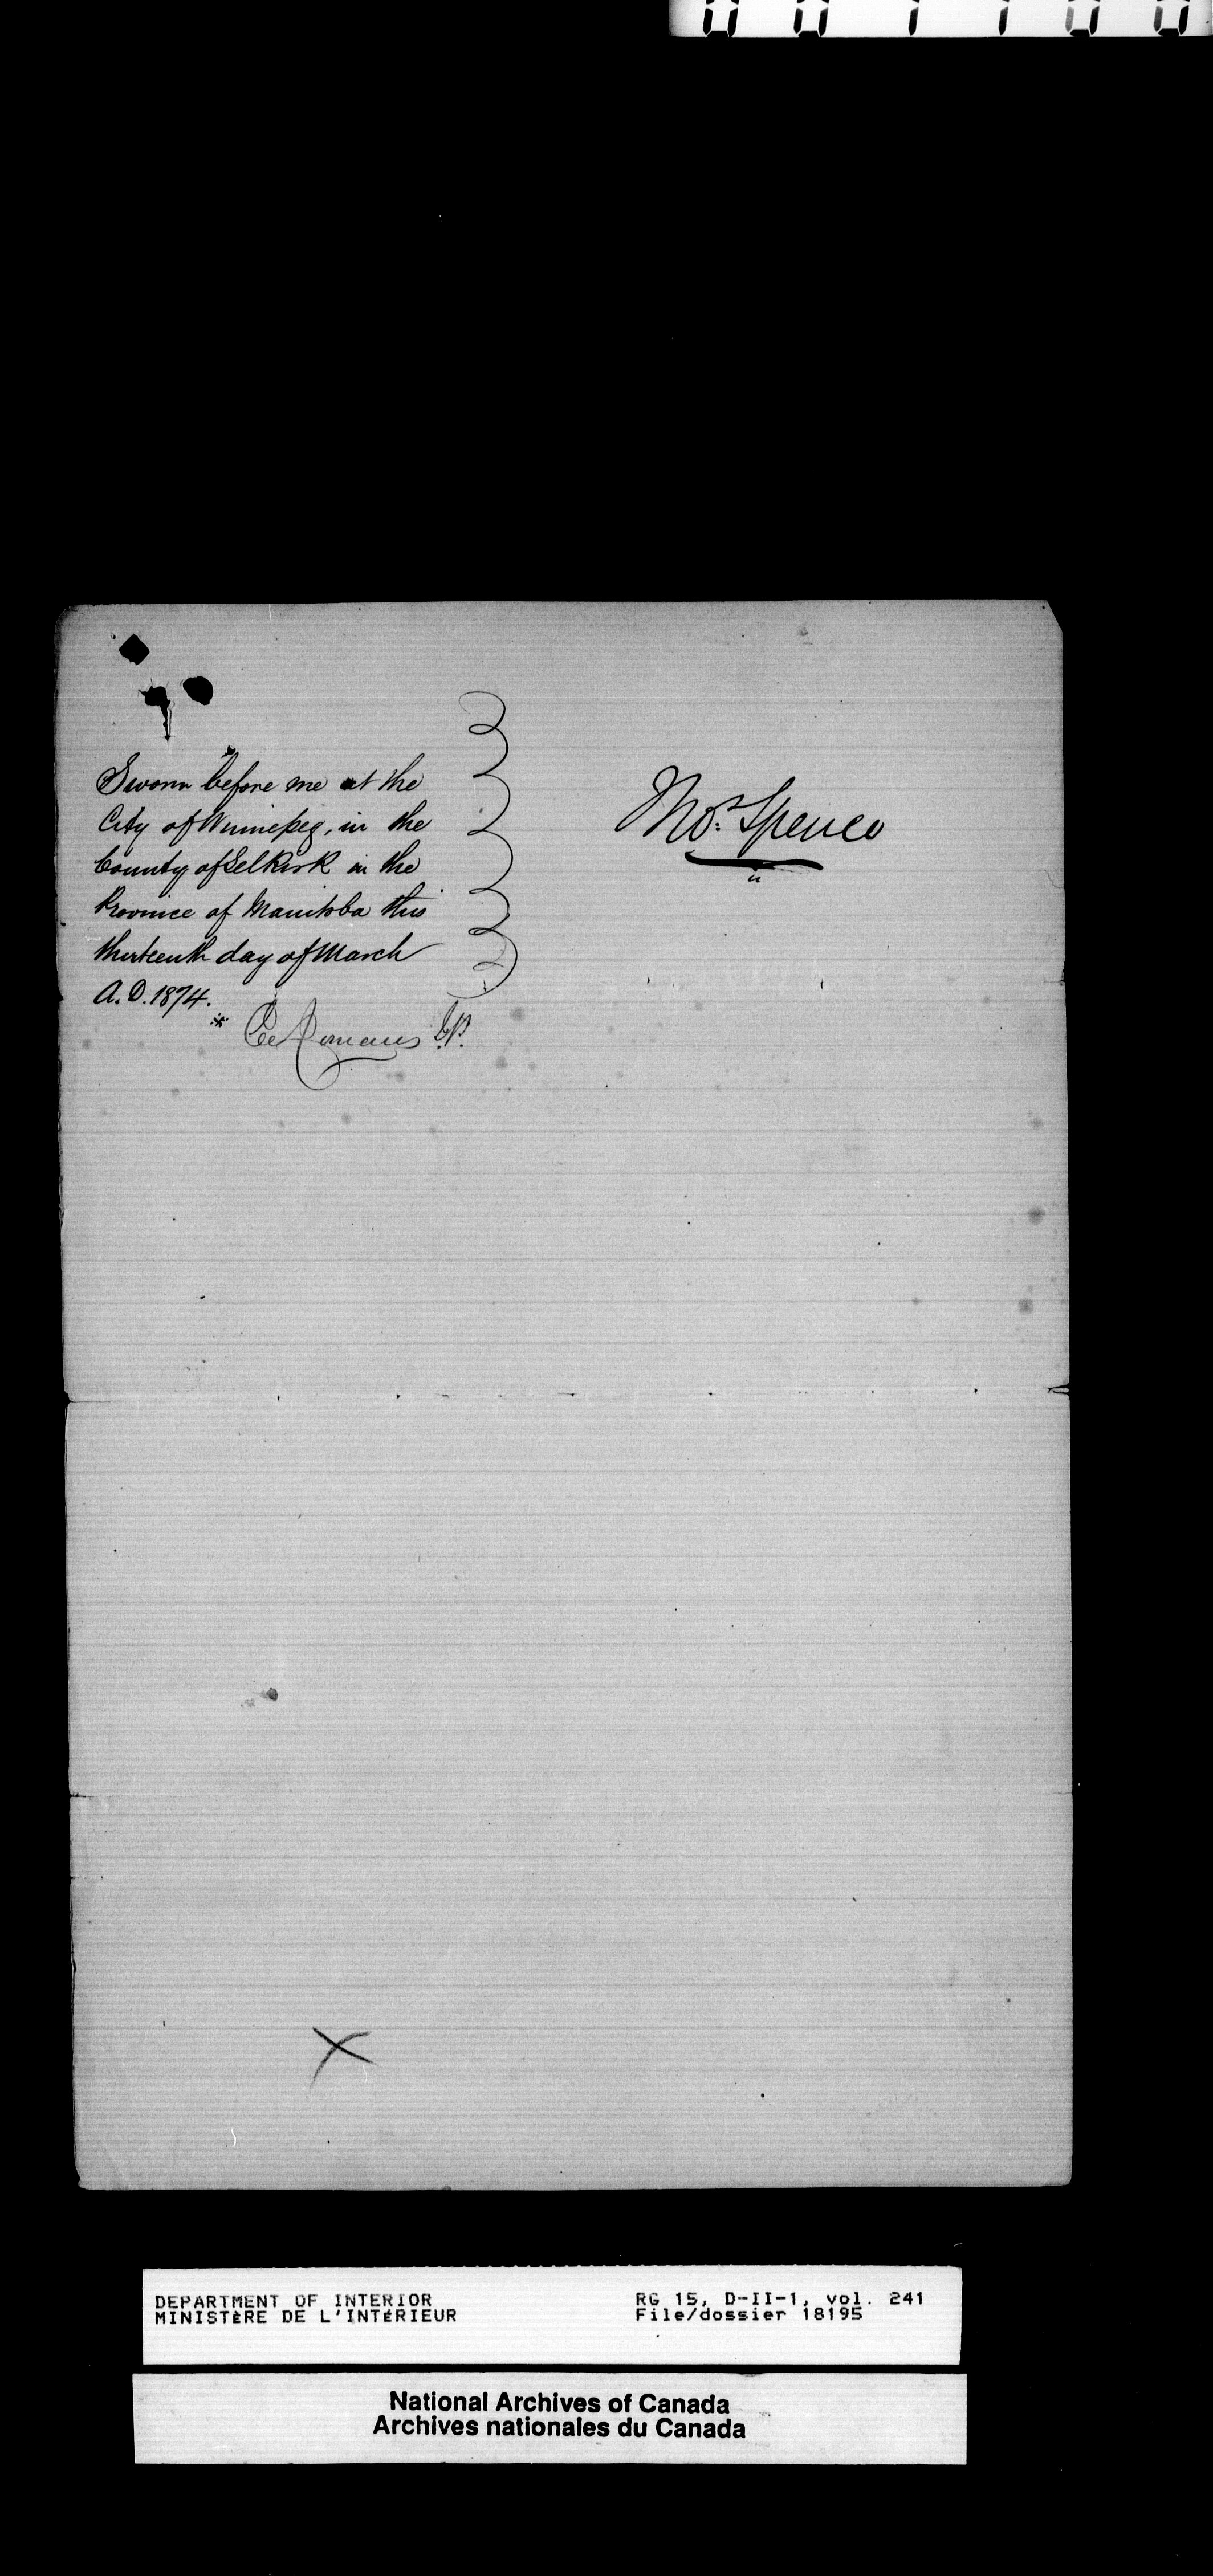 Sworn before me at the
City of Winnipeg, in the
County of Selkirk in the
Province of Manitoba this
thirteenth day of March
A.D. 1874.
Romans J.P.
Thos. Spence
DEPARTMENT OF INTERIOR
MINISTÈRE DE L'INTÉRIEUR
RG 15, D-II-1, vol. 241
File/dossier 18195
National Archives of Canada
Archives nationales du Canada